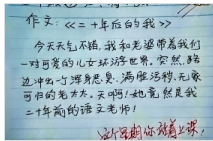 作文:《<二十年后的我>》
今天天气不错,我和老婆带着我们
一对可爱的儿女环游世界,突然,路
边冲出一个浑身恶臭、满脸污秽、无家
可归的老太太。天啊!她竟然是我
二十年前的语文老师!
这个星期你站着上课!